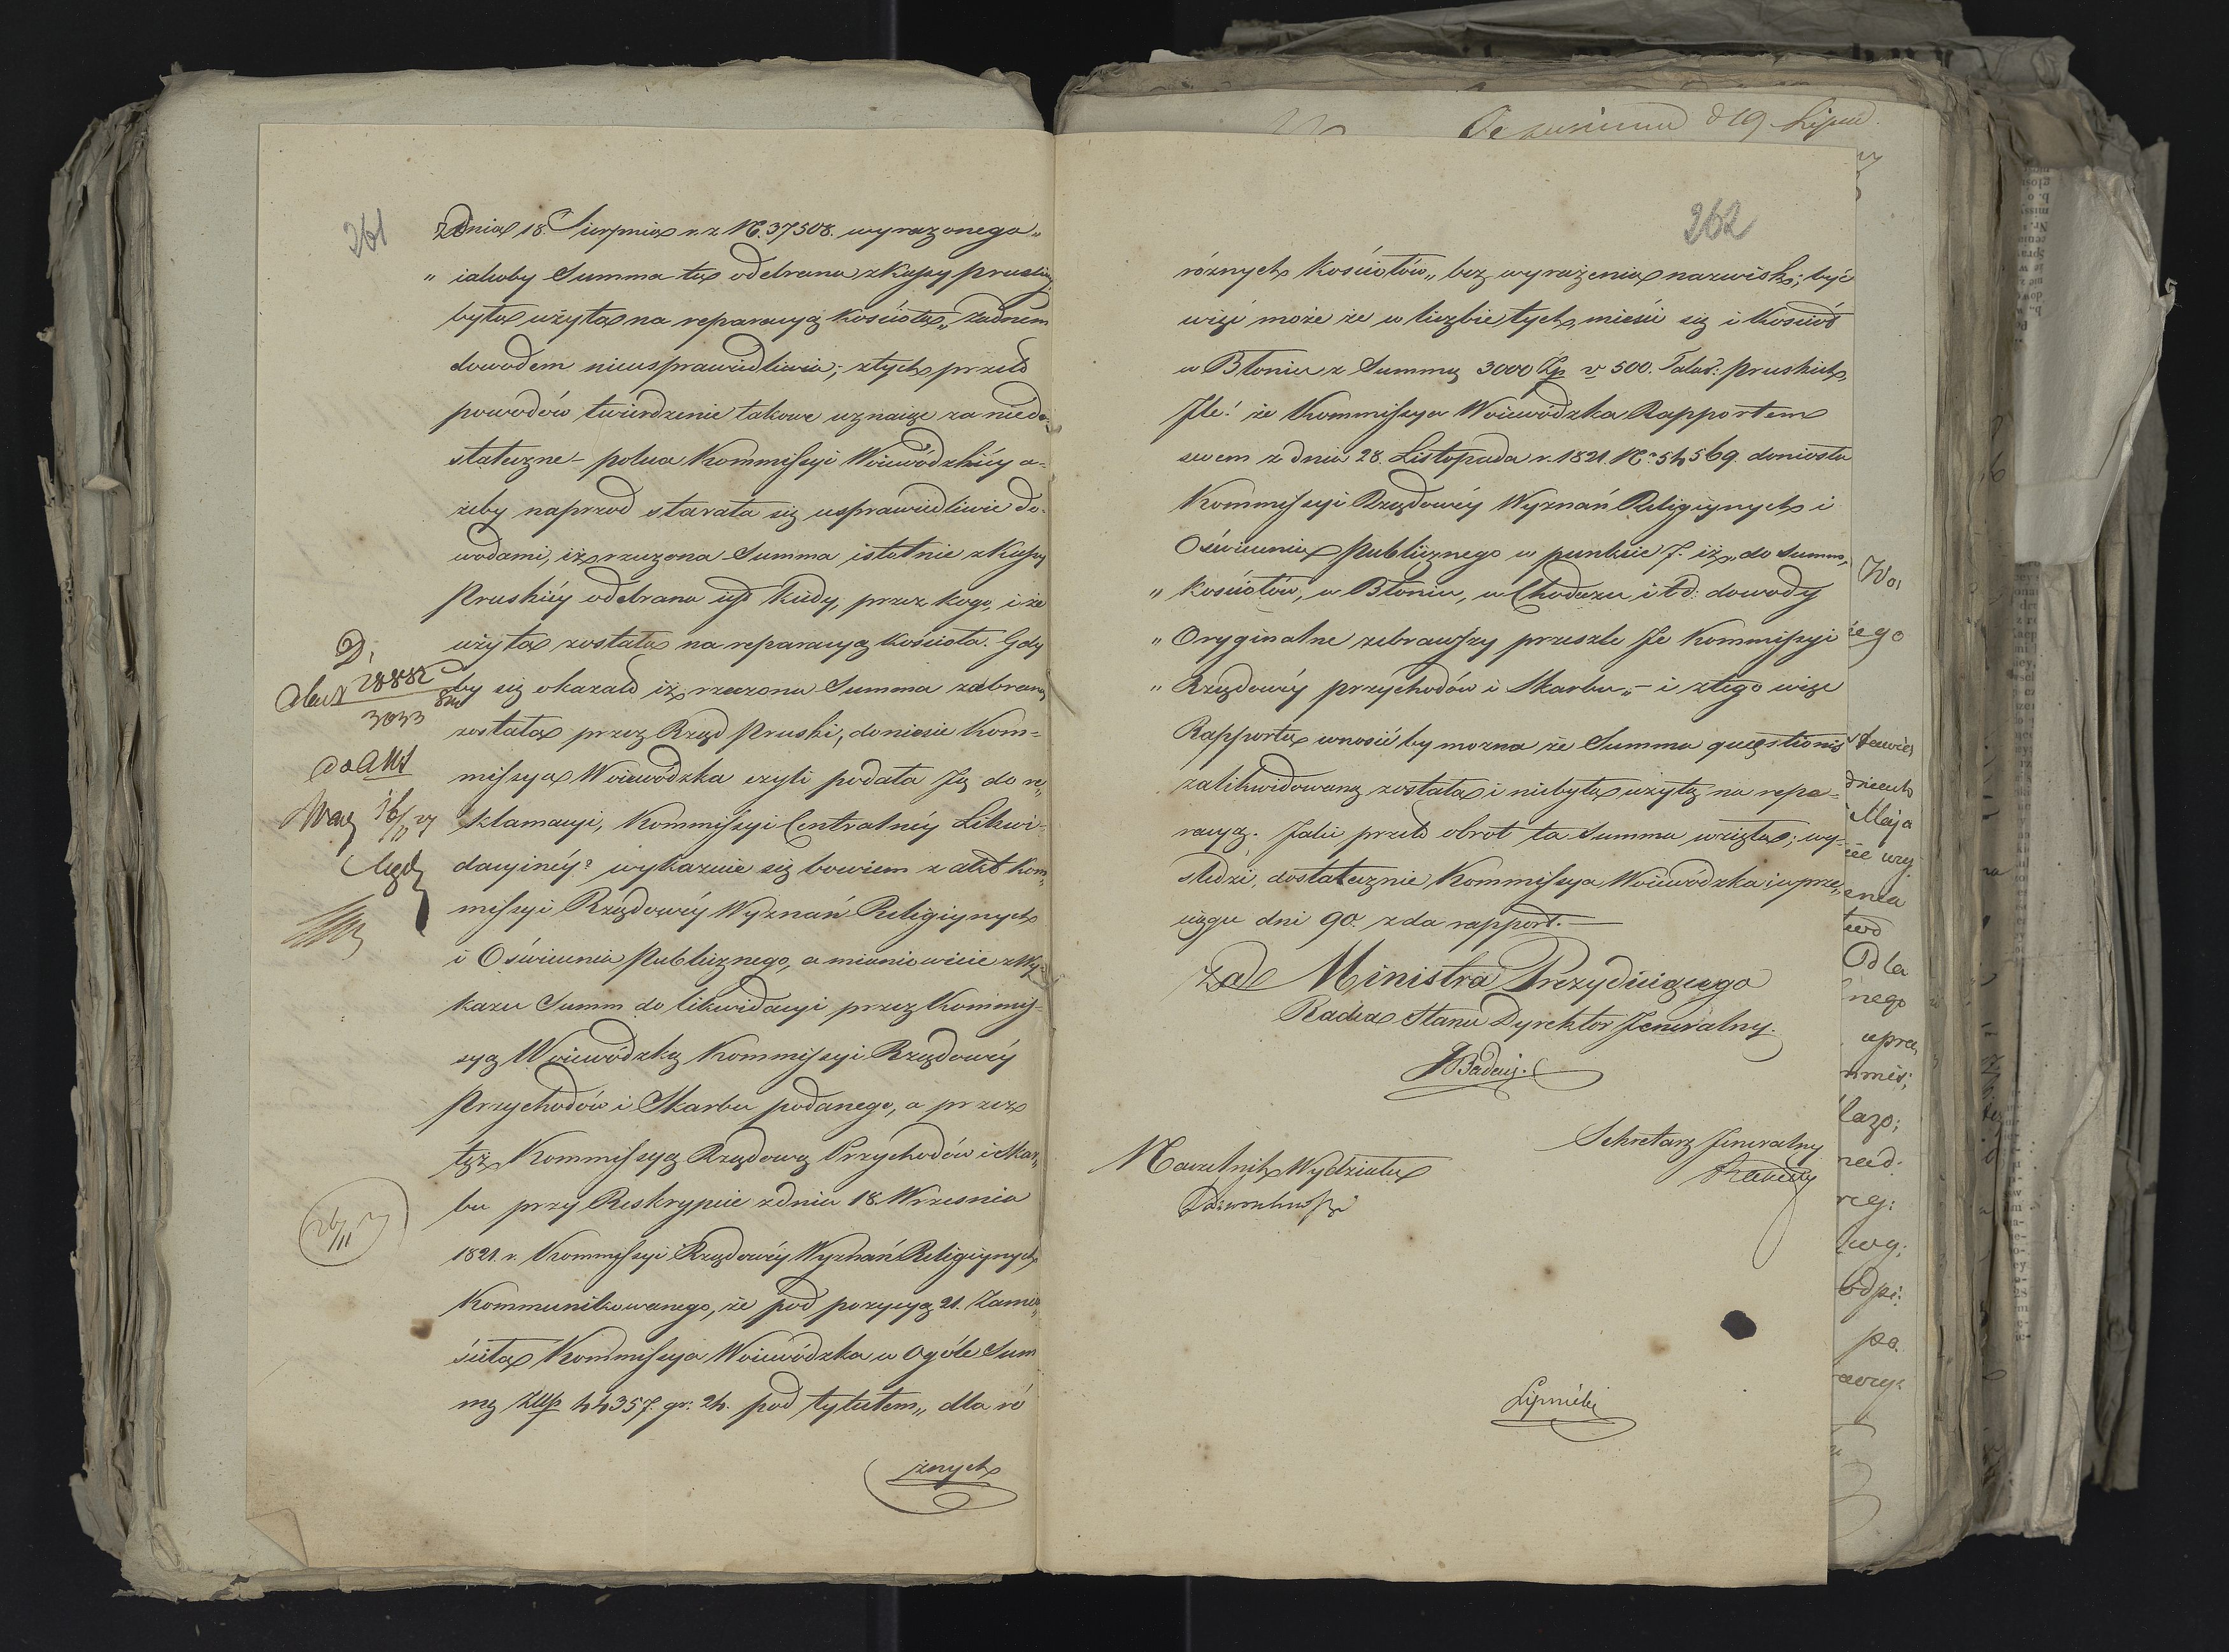 261
z dnia 18. Sierpnia r. z. N. 37508. wyrazonego „
„ iakoby Summa ta odebrana z Kassy pruskiey,
była użyta na reparacyą kościoła „ żadnem
dowodem nieusprawiedliwia; z tych przeto
powodów twierdzenie takowe uznaiąc za niedo-
stateczne – poleca Kommissyi Woiewódzkiéy a-
żeby naprzod starała się usprawiedliwić do-
wodami, iż rzeczona Summa istotnie z Kassy
Pruskiéy odebrana iest kiedy, przez kogo, i że
użyta została na reparacyą kościoła. Gdy
by się okazało iż rzeczona Summa zabraną
została przez Rząd Pruski, doniesie Kom-
missya Woiewodzka czyli podała Ją do re-
klamacyi, Kommissyi Centralnéy Likwi-
dacyinéy? wykazuie się bowiem z akt Kom-
missyi Rządowéy Wyznań Religiynych
i Oświecenia Publicznego, a mianowicie z Wy-
kazu Summ do likwidacyi przez Kommis-
syą Woiewódzką Kommissyi Rządowéy
Przychodów i Skarbu podanego, a przez
tęż Kommissyą Rządową Przychodów i Skar-
bu przy Reskrypcie z dnia 18. Wrzesnia
1821. r. Kommissyi Rządowéy Wyznań Religiynych
Kommunikowanego, że pod pozycyą 21. Zamie-
ściła Kommissya Woiewódzka w Ogóle Sum
mę Złp 44357. gr: 24. pod tytułem „ dla ró
żnych
D,
28882
3033
do Akt
26/11
262
róznych kościołów „ bez wyrażenia nazwisk; być
więc może że w liczbie tych, mieści się i Kościoł
w Błoniu z Summą 3000 Zp v 500. Talar: pruskich,
Ile! że Kommissya Woiewódzka Rapportem
swem z dnia 28. Listopada r. 1821. No 54569. doniosła
Kommissyi Rządowéy Wyznań Religiynych i
Oświecenia Publicznego w punkcie 7. iż „ do Summ,
„ kościołów, w Błoniu, w Chodczu i t d: dowody
„ Oryginalne zebrawszy przeszle Je Kommissyi
„ Rządowéy przychodów i Skarbu „ – i z tego więc
Rapportu wnosić by mozna że Summa quęstionis
zalikwidowaną została i niebyła użytą na repa-
racyą. Jaki przeto obrót ta Summa wzięła; wy-
śledzi, dostatecznie Kommissya Woiewódzka i w prze-
ciągu dni 90. zda rapport. —
Za Ministra Prezyduiącego
Radca Stanu Dyrektor Jeneralny.
JBadeni.
Sekretarz Jeneralny
Naczelnik Wydziału
Lipiński
19 Lipca